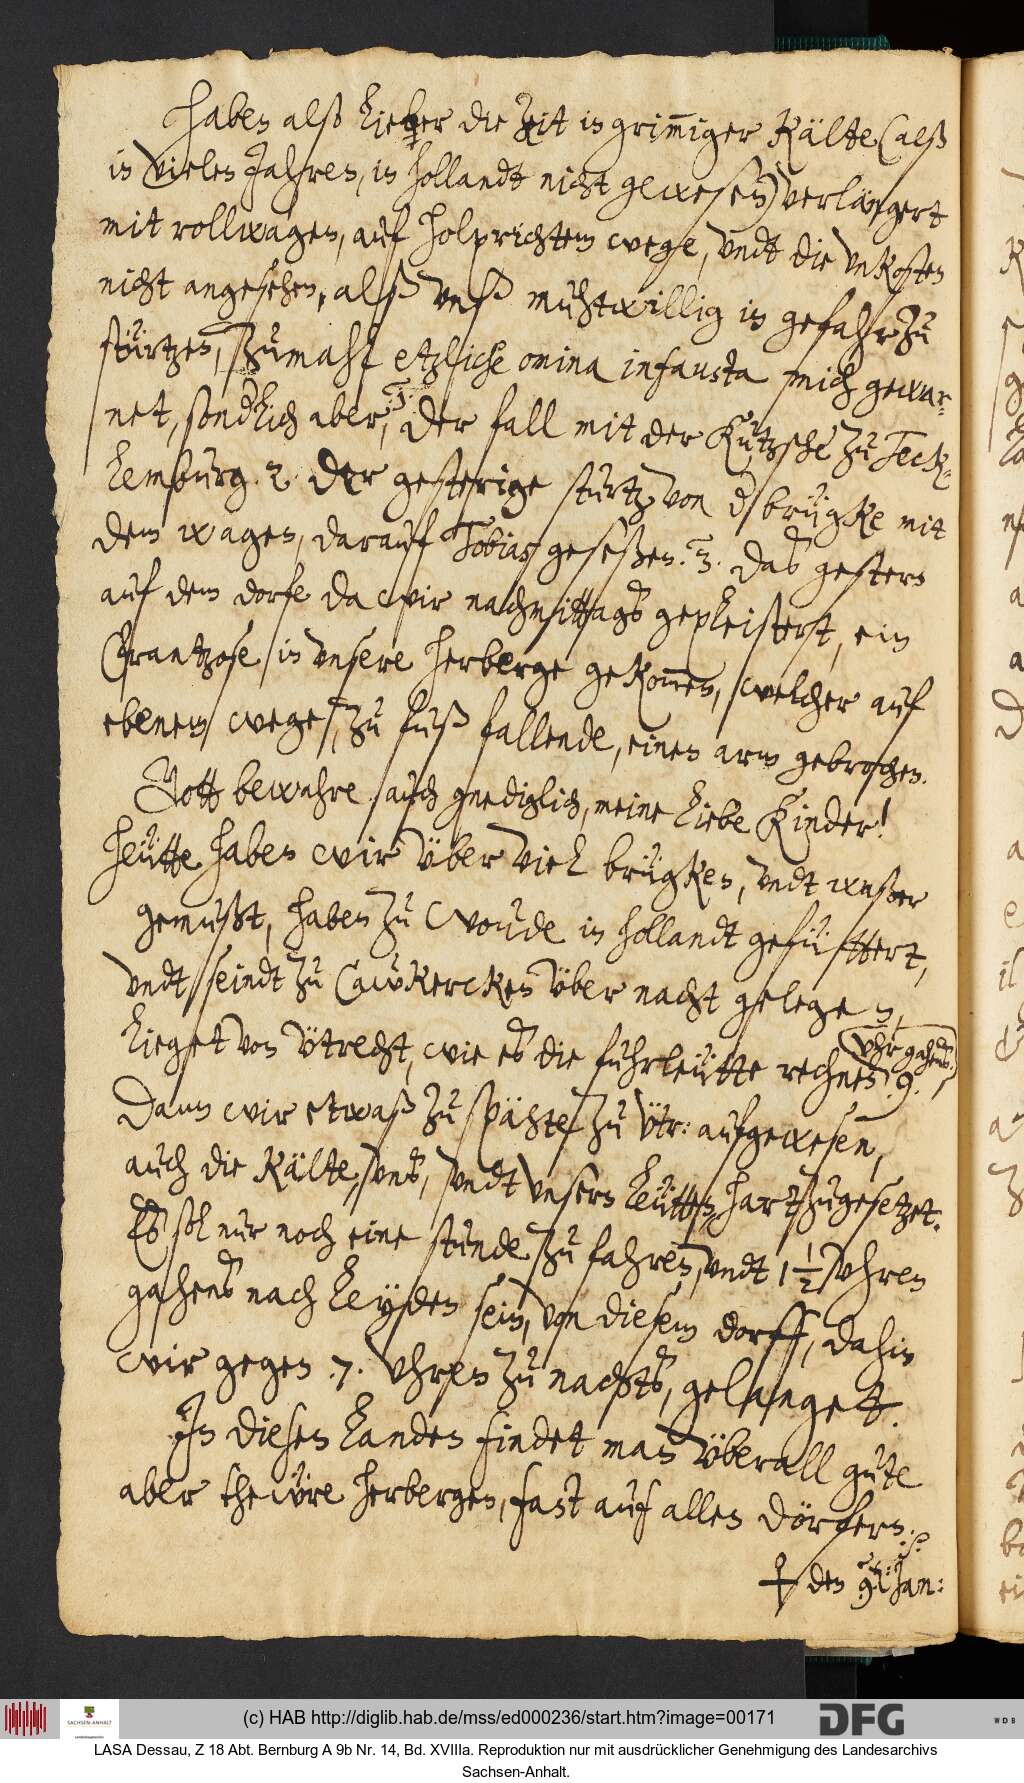 haben alß lieber die zeit in grim̅iger Kälte (alß
in vielen Jahren, in hollandt nicht gewesen) verlängert
mit rollwagen, auf holprichtem wege, vndt die vnkosten
nicht angesehen, alß vnß muhtwillig in gefahr zu
stürtzen, zumahl etzliche omina infausta mich gewar-
net, sond'lich aber, 1. der fall mit der Kutzsche zu Teck-
lemburg. 2. der gesterige sturtz von d' brügke mit
dem wagen, darauf Tobiaß geseßen. 3. das gestern
auf dem dorfe da wir nachmittags gepleistert, ein
Frantzose in vnsere herberge gekom̅en, welcher auf
ebenem wege, zu fuß fallende, einen arm gebrochen.
Gott bewahre auch gnediglich, meine liebe Kinder!
Heütte haben wir vber viel brügken, vndt waßer
gemußt, haben zu Woude in hollandt gefüttert,
vndt seindt zu Cawkercken vber nacht gelegen,
lieget von Vtrecht, wie es die fuhrleütte rechnen .9. vhr gahens.
Dann wir etwaß zu spähte zu Vtr: aufgewesen,
auch die Kälte, vns, vndt vnsern leütten, hart zugesetzet.
Es sol nur noch eine stunde zu fahren, vndt 1½ vhren
gahens nach Leyden sein, von diesem dorff, dahin
wir gegen .7. vhren zu nachts, gelanget.
In diesen landen findet man vberall gute
aber thewre herbergen, fast auf allen dörfern.
den 9. Jan:
(c) HAB http://diglib.hab.de/mss/ed000236/start.htm?image=00171
SACHSEN-ANHALT
DFG
WDB
LASA Dessau, Z 18 Abt. Bernburg A 9b Nr. 14, Bd. XVIIIa. Reproduktion nur mit ausdrücklicher Genehmigung des Landesarchivs
Sachsen-Anhalt.